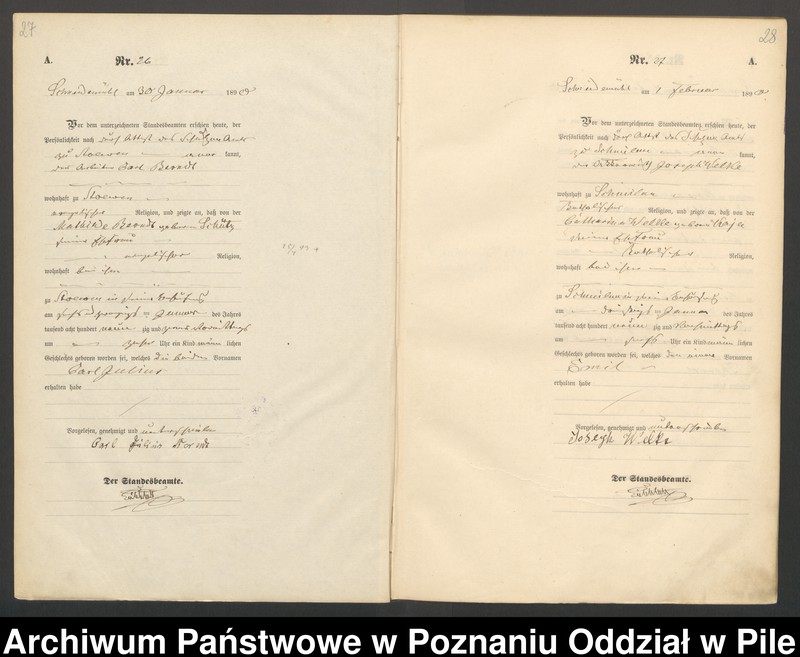 27
A.
Nr. 26
Schneidemühl am 30 Januar 189
Vor dem unterzeichneten Standesbeamten erschien heute, der
Persönlichkeit nach durch Attest des Schulzen Amts
zu Stoewen kannt,
der Arbeiter Carl Berndt
wohnhaft zu Stoewen
evangelischer Religion, und zeigte an, daß von der
Mathilde Berndt geborene Schulz
seine Ehefrau
evangelischer Religion,
wohnhaft bei ihm
zu Stoewen in seiner Behausung
am Januar des Jahres
tausend acht hundert neun zig und Vormittags
um Uhr ein Kind männ lichen
Geschlechts geboren worden sei, welches die beiden Vornamen
Carl Julius
erhalten habe
Vorgelesen, genehmigt und unterschrieben
Carl Julius Berndt
Der Standesbeamte.
28
Nr. 27
A.
Schneidemühl am 1 Februar 189
Vor dem unterzeichneten Standesbeamten erschien heute, der
Persönlichkeit nach durch Attest des Schulzen Amts
zu Schmilau kannt,
der Joseph Welke
wohnhaft zu Schmilau
katholischer Religion, und zeigte an, daß von der
Catharina Welke geborene
seine Ehefrau
katholischer Religion,
wohnhaft bei ihm
zu Schmilau in seiner Behausung
am Januar des Jahres
tausend acht hundert neun zig und Vormittags
um Uhr ein Kind männ lichen
Geschlechts geboren worden sei, welches den einen Vornamen
Emil
erhalten habe
Vorgelesen, genehmigt und unterschrieben
Joseph Welke
Der Standesbeamte.
Archiwum Państwowe w Poznaniu Oddział w Pile